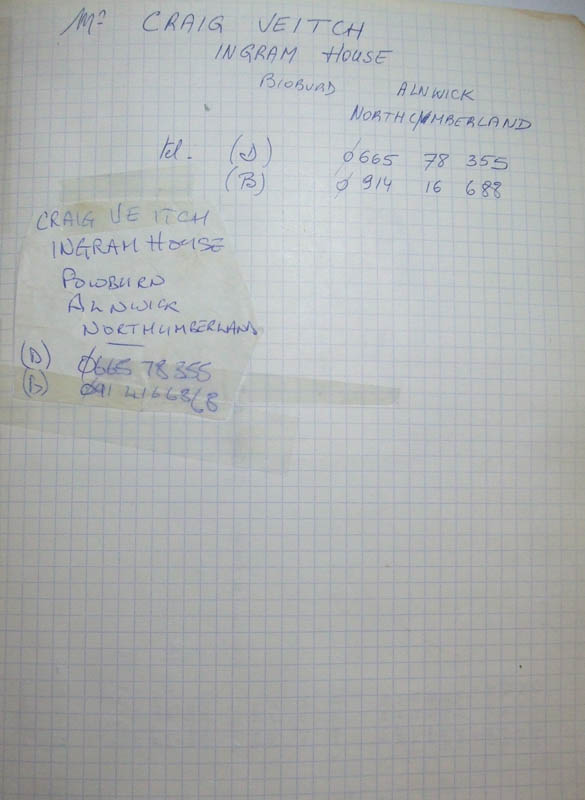 Mr CRAIG VEITCH
INGRAM HOUSE
BIOBURD ALNWICK
NORTHUMBERLAND
tel. (D) 0665 78 355
(B) 0 914 16 688
CRAIG VEITCH
INGRAM HOUSE
POWBURN
ALNWICK
NORTHUMBERLAND
(D) 0665 78 355
(B)